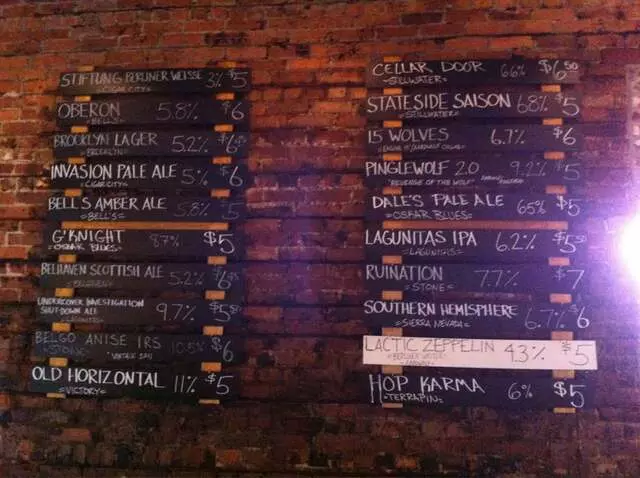 STIFTUNG BERLINER WEISSE 3% $5
=CIGAR CITY=
OBERON 5.8% $6
=BELL'S=
BROOKLYN LAGER 5.2% $6
=BROOKLYN=
INVASION PALE ALE 5% $6
=CIGAR CITY=
BELL'S AMBER ALE 5.8% $5
=BELL'S=
G'KNIGHT 8.7% $5
=OSKAR BLUES=
BELHAVEN SCOTTISH ALE 5.2% $6
=BELHAVEN=
UNDERCOVER INVESTIGATION
SHUT-DOWN ALE 9.7% $5
=LAGUNITAS=
BELGO ANISE IRS 10.5% $6
=STONE=
OLD HORIZONTAL 11% $5
=VICTORY=
CELLAR DOOR 6.6% $6.50
=STILLWATER=
STATESIDE SAISON 6.8% $5
=STILLWATER=
15 WOLVES 6.7% $6
PINGLEWOLF 2.0 9.2% $5
"REVENGE OF THE WOLF"
DALE'S PALE ALE 65% $5
=OSKAR BLUES=
LAGUNITAS IPA 6.2% $5.50
=LAGUNITAS=
RUINATION 7.7% $7
=STONE=
SOUTHERN HEMISPHERE 6.7% $6
=SIERRA NEVADA=
LACTIC ZEPPELIN 4.3% $5
=BERLINER WEISSE=
HOP KARMA 6% $5
=TERRAPIN=